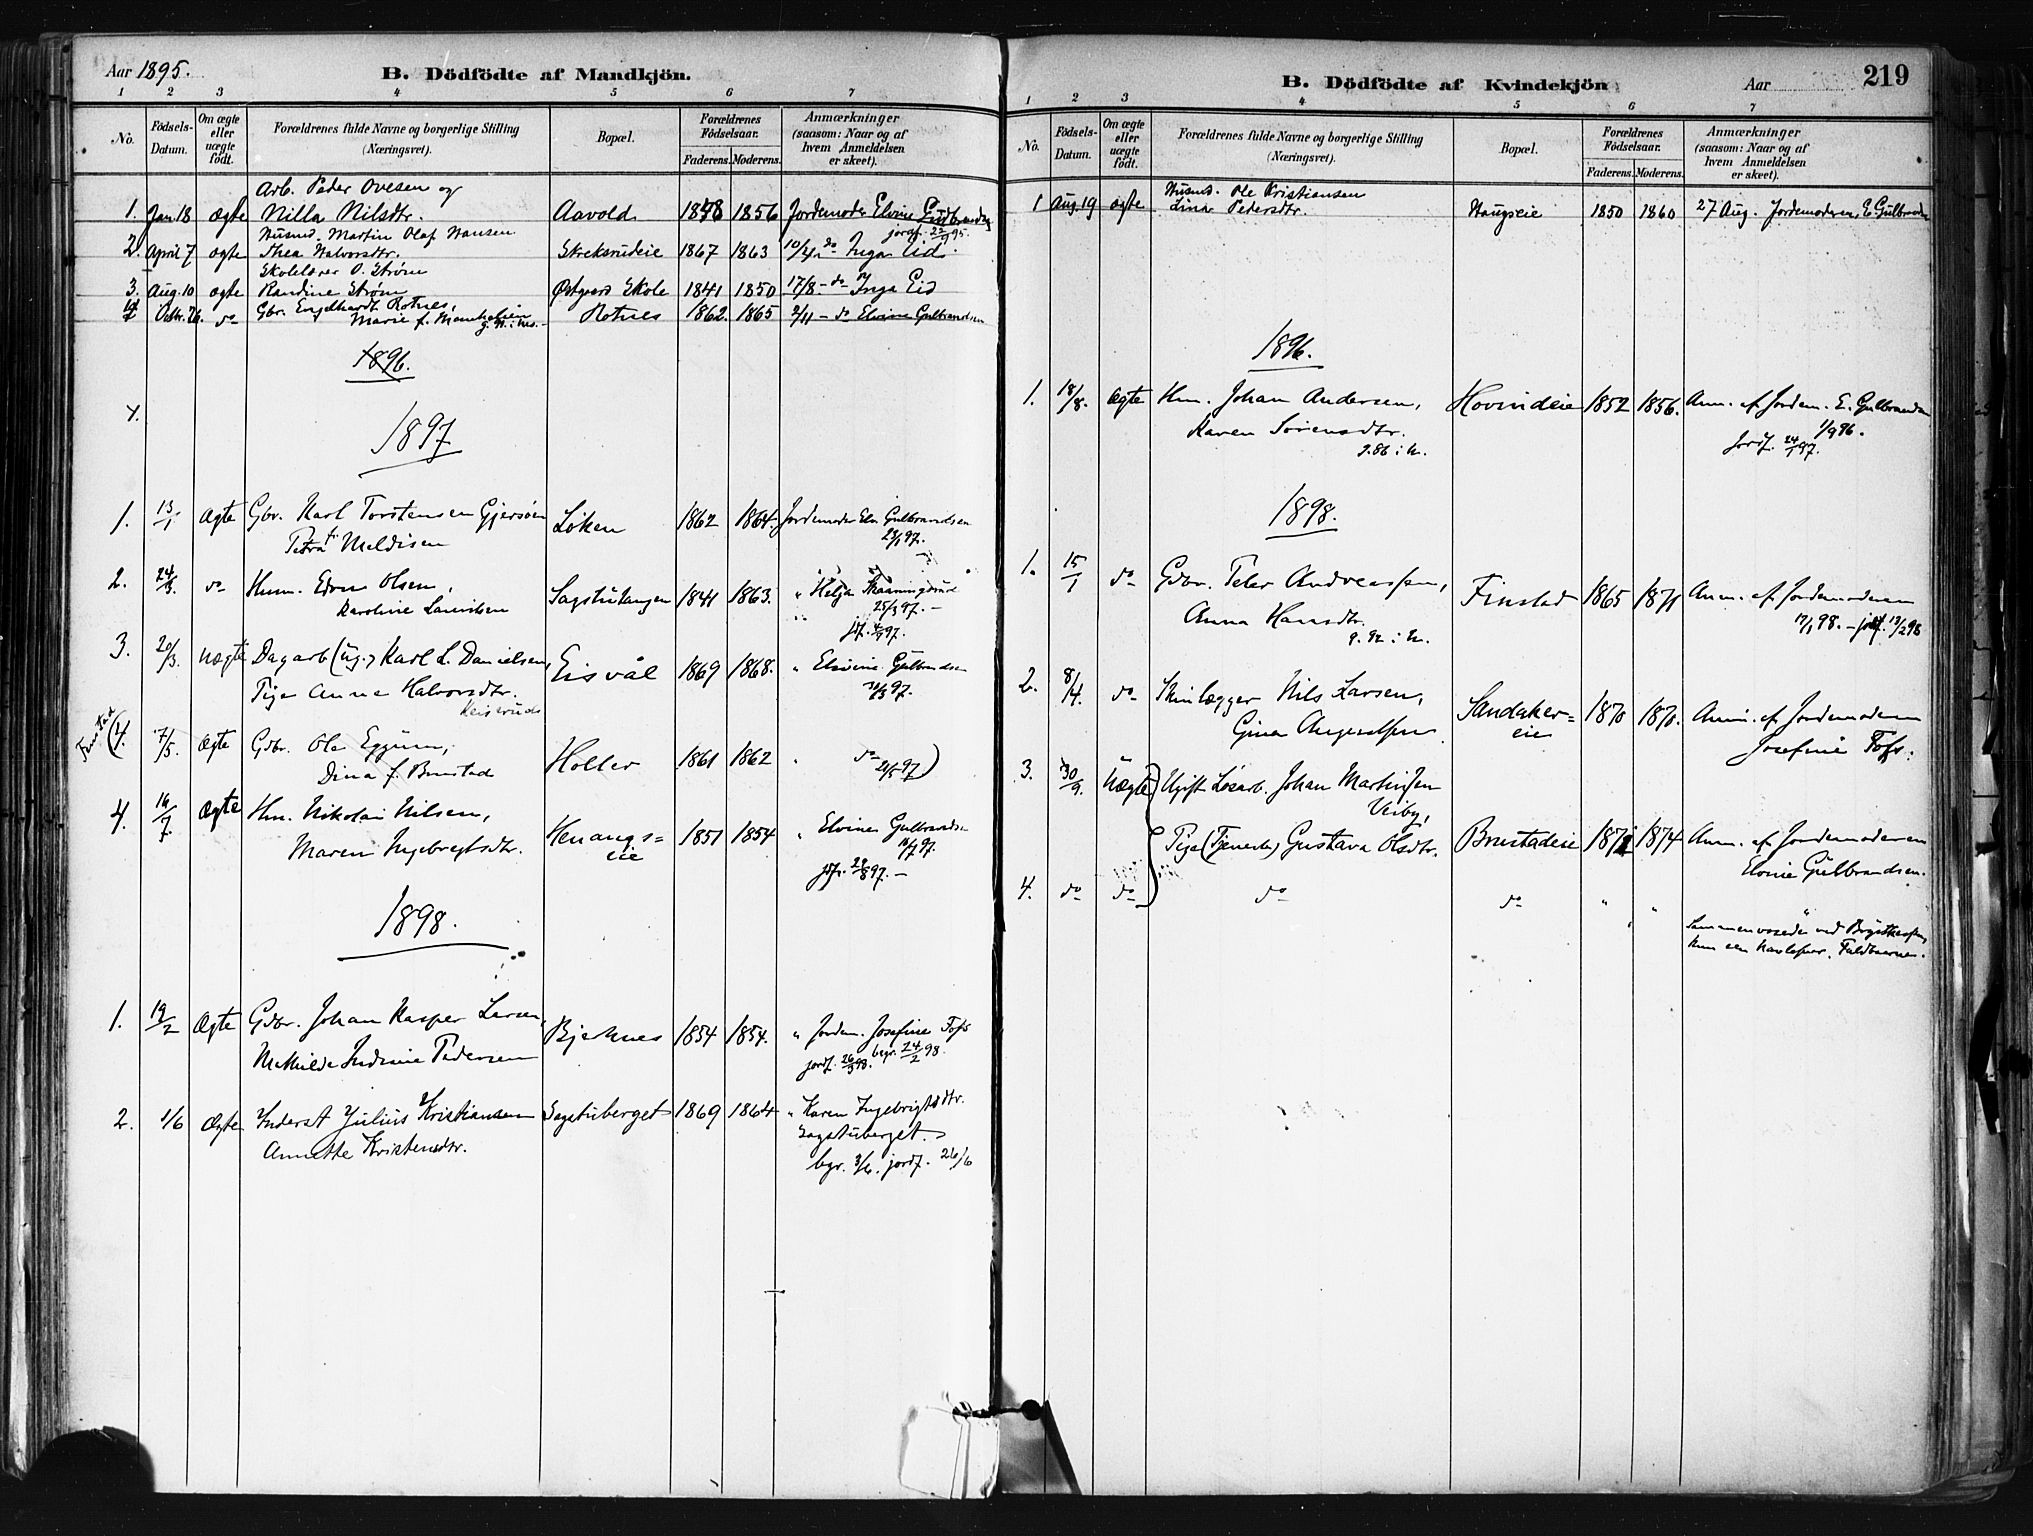 Aar 1895.
B. Dödfödte af Mandkjön.
1 2 3 4 5 6 7
No.
Födsels-Datum.
Om ægte eller uægte födt.
Forældrenes fulde Navne og borgerlige Stilling (Næringsvei).
Bopæl.
Forældrenes Födselsaar.
Faderens. Moderens.
Anmærkninger (saasom: Naar og af hvem Anmeldelsen er skeet).
Arb. Peder Ovesen og
1. Jan. 18 ægte Nilla Nilsdtr. Aavold 1856 Jordemoder Elvine Gulbrandsen
jordf. 22/9 95.
Husmd. Martin Olaf Hansen
2. April 7 ægte Thea Halvorsdtr. 1867 1863 10/4 - do Inga Eid.
Skolelærer O. Strøm
3. Aug. 10 ægte Randine Strøm Østgaard Skole 1841 1850 17/8 - do Inga Eid
4 Oktr. 26. do Gbr. Engelhardt Rotnes, Rotnes 1862. 1865 2/11 - do Elvine Gulbrandsen
Marie f.
1896.
1.
1897
1. 13/1 Ægte Gbr. Karl Torstensen Løken 1862 1864. Jordemoder Elv. Gulbrandsen
Petra Meldisen 28/1 97.
2. 24/3. do Husm. Olsen, Sagstutangen 1841 1863. " Helga
Karoline Lauritsen 25/3 97. -
3. 20/3. Uægte Dagarb (ug.) Karl L. Danielsen, Eisvål 1869 1868. " Elvine Gulbrandsen
Pige Anna Halvorsdtr. 97.
Finstad
(4. 7/5. Ægte Gdbr. Ole Eggum, Holler 1861 1862 " do
Dina f. Brustad 97)
4. 16/7. Ægte Hm. Nikolai Nilsen, Henangs= 1851 1854 " Elvine Gulbrandsen
Maren Ingebregtsdtr. eie
97. -
1898.
1. 19/2 Ægte Gdbr. Johan Kasper Larsen, Bjerknes 1854 1854. " Jordem. Josefine Tofs
Mathilde Indiane Pedersen jordf. 26/3 98. begr. 24/2 98.
2. 1/6 Ægte Inderst Julius Kristiansen Sagstuberget 1869 1864 " Karen Ingebrigtsdtr.
Annette Kristensdtr. Sagstuberget.
bgr. 3/6. jordf. 26/6
B. Dödfödte af Kvindekjön
Aar
219
1 2 3 4 5 6 7
No.
Födsels-Datum.
Om ægte eller uægte födt.
Forældrenes fulde Navne og borgerlige Stilling (Næringsvei).
Bopæl.
Forældrenes Födselsaar.
Faderens. Moderens.
Anmærkninger (saasom: Naar og af hvem Anmeldelsen er skeet).
Husmd. Ole Kristiansen
1 Aug. 19 ægte Lina Pedersdtr. Haugseie 1850 1860 27 Aug. Jordemoderen, E Gulbrandsen
1896.
1. 18/8. Ægte Hm. Johan Andersen, Hovindeie 1852 1856. Anm. af Jordem. E. Gulbrandsen
Karen Sørensdtr. 1/9 96.
g. 86 i N. jordf. 24/1 97.
1898.
1. 15/1 do Gdbr. Peter Andreassen, Finstad 1865 1871 Anm. af Jordemoderen
Anna Hansdtr. 17/1 98. - jordf. 13/2 98
g. 92 i N.
2. 8/4. do Skinlægger Nils Larsen, Sandaker= 1870 1870. Anm. af Jordemoderen
Gina eie Josefine Tofs.
3. 30/9. Uægte Ugift Løsarb. Johan Martinsen
Veiby,
Pige (Tjeneste) Gustava Olsdtr. Brustadeie 1874 Anm. af Jordemoderen
Elvine Gulbrandsen.
4. do do do do " " "
Sammenvoxede ved Brystkassen,
kun een Navlesnor. Fuldbaarne.